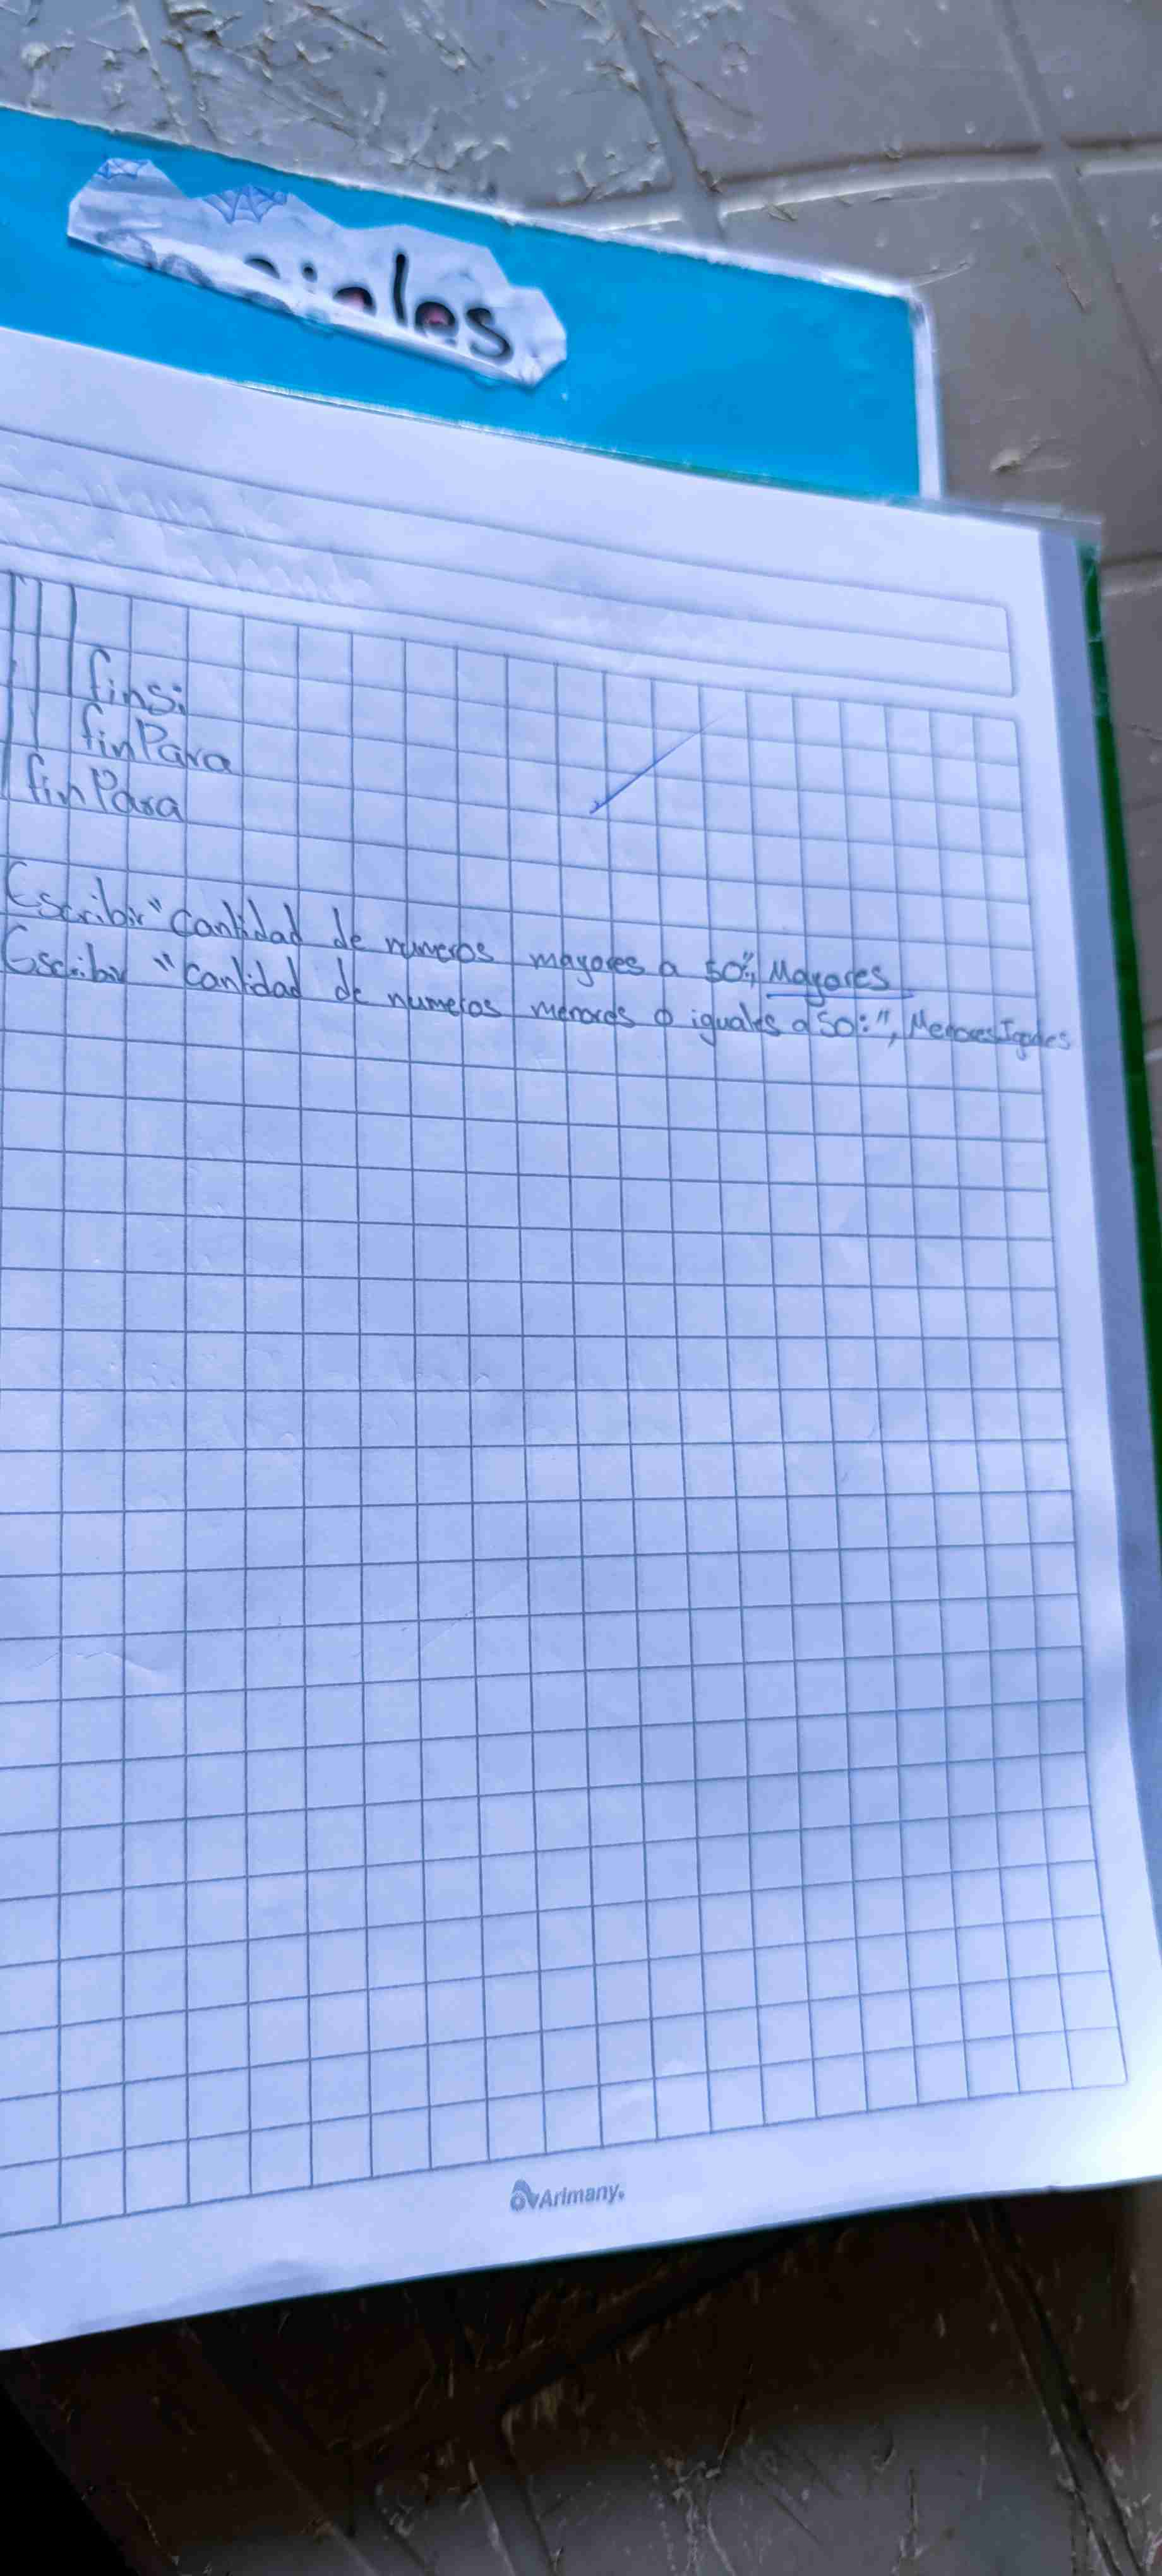 finsi
finPara
finPara
Escribir "Cantidad de numeros mayores a 50:", Mayores
Escribir "Cantidad de numeros menores o iguales a 50:", MenoresIguales
Arimany.